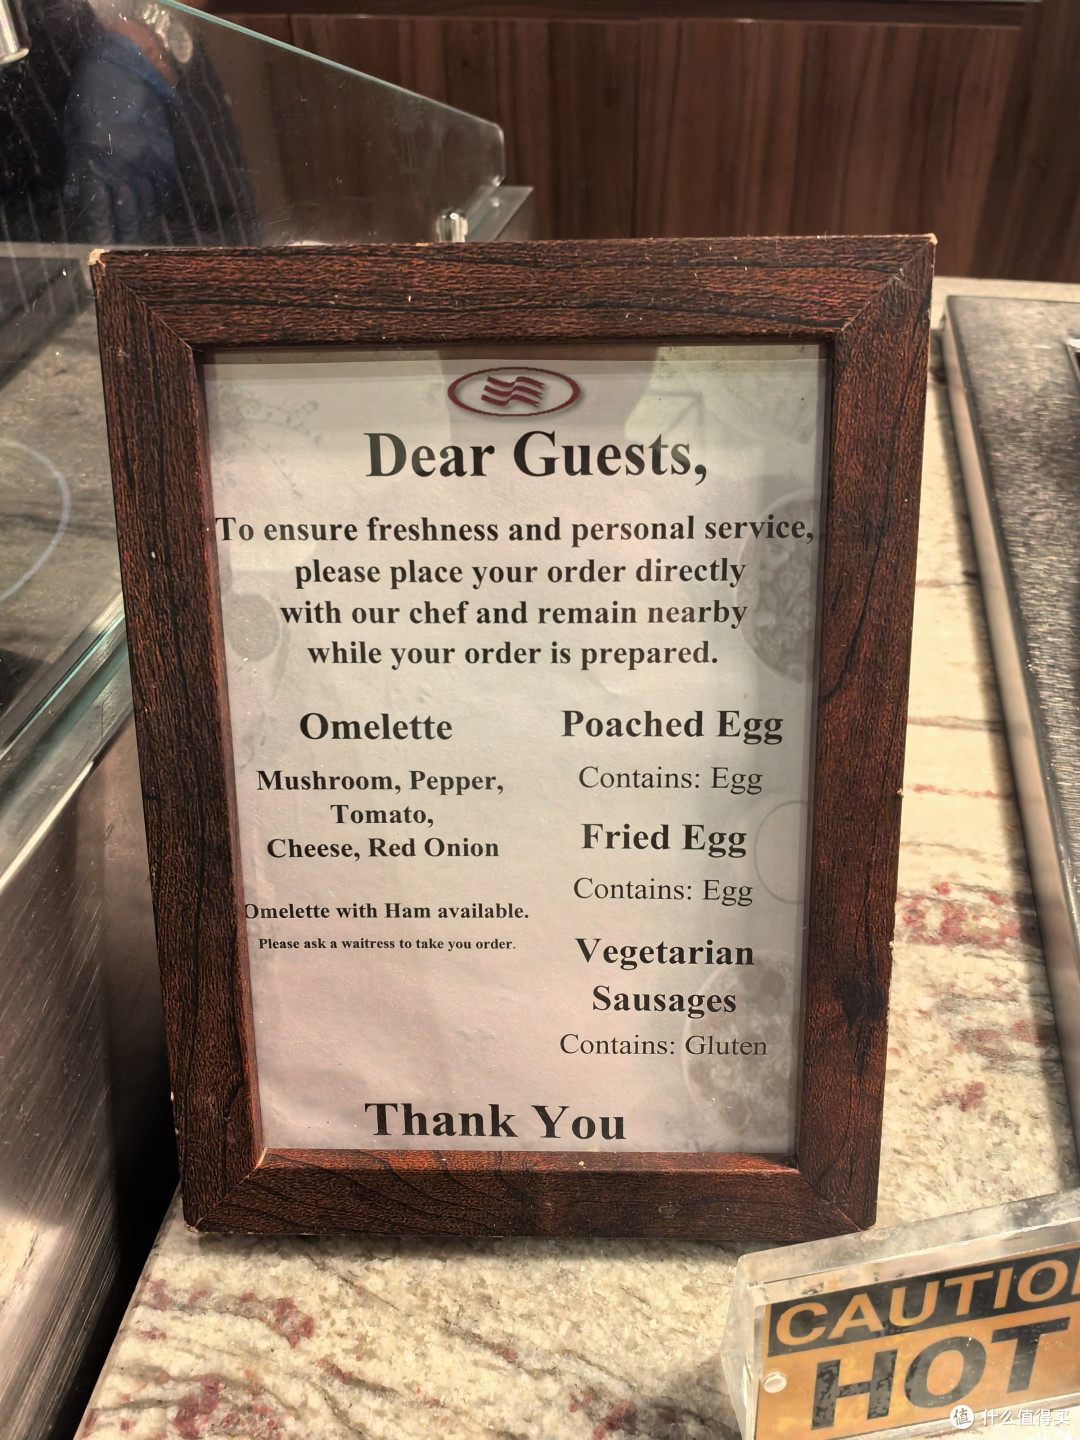 Dear Guests,
To ensure freshness and personal service,
please place your order directly
with our chef and remain nearby
while your order is prepared.
Omelette
Mushroom, Pepper,
Tomato,
Cheese, Red Onion
Omelette with Ham available.
Please ask a waitress to take you order.
Poached Egg
Contains: Egg
Fried Egg
Contains: Egg
Vegetarian
Sausages
Contains: Gluten
Thank You
CAUTIO
HOT
值 什么值得买